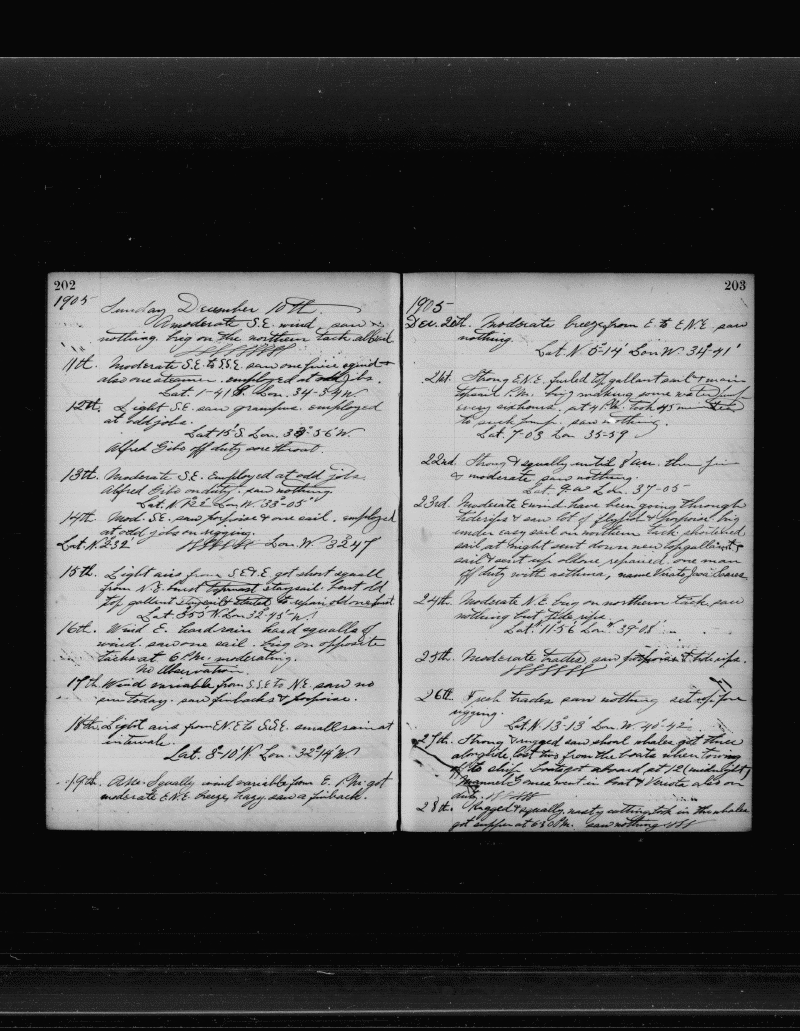 202
1905 Sunday December 10th
A moderate S.E. wind, saw
nothing. brig on the northern tack all
11th. Moderate S.E. to S.S.E. saw one
also one steamer. employed at odd jobs.
Lat. 1-41 S. Lon. 34-34 W
12th. Light S.E. saw grampus. employed
at odd jobs.
Lat 15 S. Lon. 33-56 W
Alfred Gibo off duty sore throat.
13th. Moderate S.E. Employed at odd jobs.
Alfred Gibo on duty. saw nothing
Lat. N 1°22' Lon W. 33°-05'
14th. Mod. S.E. saw porpoise & one sail. employed
at odd jobs on rigging.
Lat. N. 2°32' Lon. W. 32 47
15th. Light airs from S.E. & E. got short squall
from N.E. burst topmast staysail. bent old
top gallant to repair old one
Lat. 3-55 N Lon 32-45-W
16th. Wind E. hard rain hard squalls of
wind. saw one sail. brig on opposite
tacks at 6 P.M. moderating.
No Observation.
17th Wind variable from S.S.E. to N.E. saw no
sun today. saw finbacks & porpoise.
18th. Light airs from E.N.E. to S.S.E. small rain at
intervals.
Lat. 3-10 N Lon. 32°14' W.
19th. Squally wind variable from E. P.M. got
moderate E.N.E. breeze, hazy. saw a finback.
203
1905
Dec. 20th. Moderate breeze from E. to E.N.E. saw
nothing.
Lat. N 5°-14' Lon W. 34°-41'
21st. Strong E.N.E. furled top gallant sail & main
topsail P.M. brig making some water
every six hours, at 4 P.M. took 45 minutes
to suck pump, saw nothing.
Lat. 7-03 Lon 35-59
22nd. Strong & squally until 8 a.m. then fine
& moderate saw nothing.
Lat. Lon. 37-05
23rd. Moderate E wind have been going through
tiderips & saw lot of flyfish & porpoise. brig
under easy sail on northern tack. shortened
sail at night sent down new topgallant
sail & sent up old one repaired. one man
off duty with asthma, name
24th. Moderate N.E. brig on northern tack. saw
nothing but tide rips
Lat. N 11-56 Lon. W 39-08'
25th. Moderate trades, saw porpoise & tide rips.
26th. Fresh trades saw nothing set up fore
rigging.
Lat N. 13°-13' Lon. W. 40°-42
27th. Strong & rugged saw shoal whales got three
alongside lost two from the boats when towing
to ship. boats got aboard at 12 (midnight)
also on
duty.
28th. Rugged & squally, nasty cutting in the whales
got supper at 6:30 P.M. saw nothing